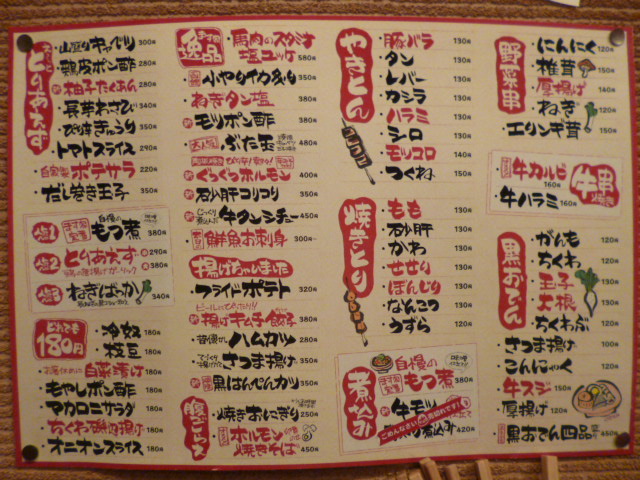 とりあえず
山盛りキャベツ 300円
鶏皮ポン酢 280円
柚子たくあん 280円
長芋わさび 340円
ぴり辛きゅうり 350円
トマトスライス 290円
自家製 ポテサラ 220円
だし巻き玉子 350円
塩1 自慢のもつ煮 380円
塩2 とりあえず 290円 380円
ねぎばっか 340円
どれでも180円
冷奴 180円
枝豆 180円
白菜漬け 180円
もやしポン酢 180円
マカロニサラダ 180円
ちくわ磯辺揚げ 180円
オニオンスライス 180円
逸品
馬肉のスタミナ塩ユッケ 580円
小やりイカ丸 380円
ねぎタン塩 380円
モツポン酢 380円
ぶた玉 480円
ぐつぐつホルモン 400円
砂肝コリコリ 350円
牛タンシチュー 450円
鮮魚お刺身 300円~
揚げちゃいました
フライドポテト 320円
ビールにぴったり!!
揚げキムチ餃子 380円
ハムカツ 380円
さつま揚げ 380円
黒はんぺんカツ 380円
焼きおにぎり 250円
ホルモン焼きそば 450円
やきとん
豚バラ 130円
タン 130円
レバー 130円
カシラ 130円
ハラミ 130円
シロ 130円
モッコロ 140円
つくね 150円
焼きとり
もも 130円
砂肝 130円
かわ 130円
せせり 130円
ぼんじり 130円
なんこつ 130円
うずら 120円
煮込み
自慢のもつ煮 380円
牛モツ
煮込み 450円
ごめんなさい 売切れです!
野菜串
にんにく 120円
椎茸 150円
厚揚げ 140円
ねぎ 120円
エリンギ茸 120円
牛串
牛カルビ 160円
牛ハラミ 160円
黒おでん
がんも 120円
ちくわ 120円
玉子 120円
大根 120円
ちくわぶ 120円
さつま揚げ 120円
こんにゃく 120円
牛スジ 150円
厚揚げ 120円
黒おでん四品 450円